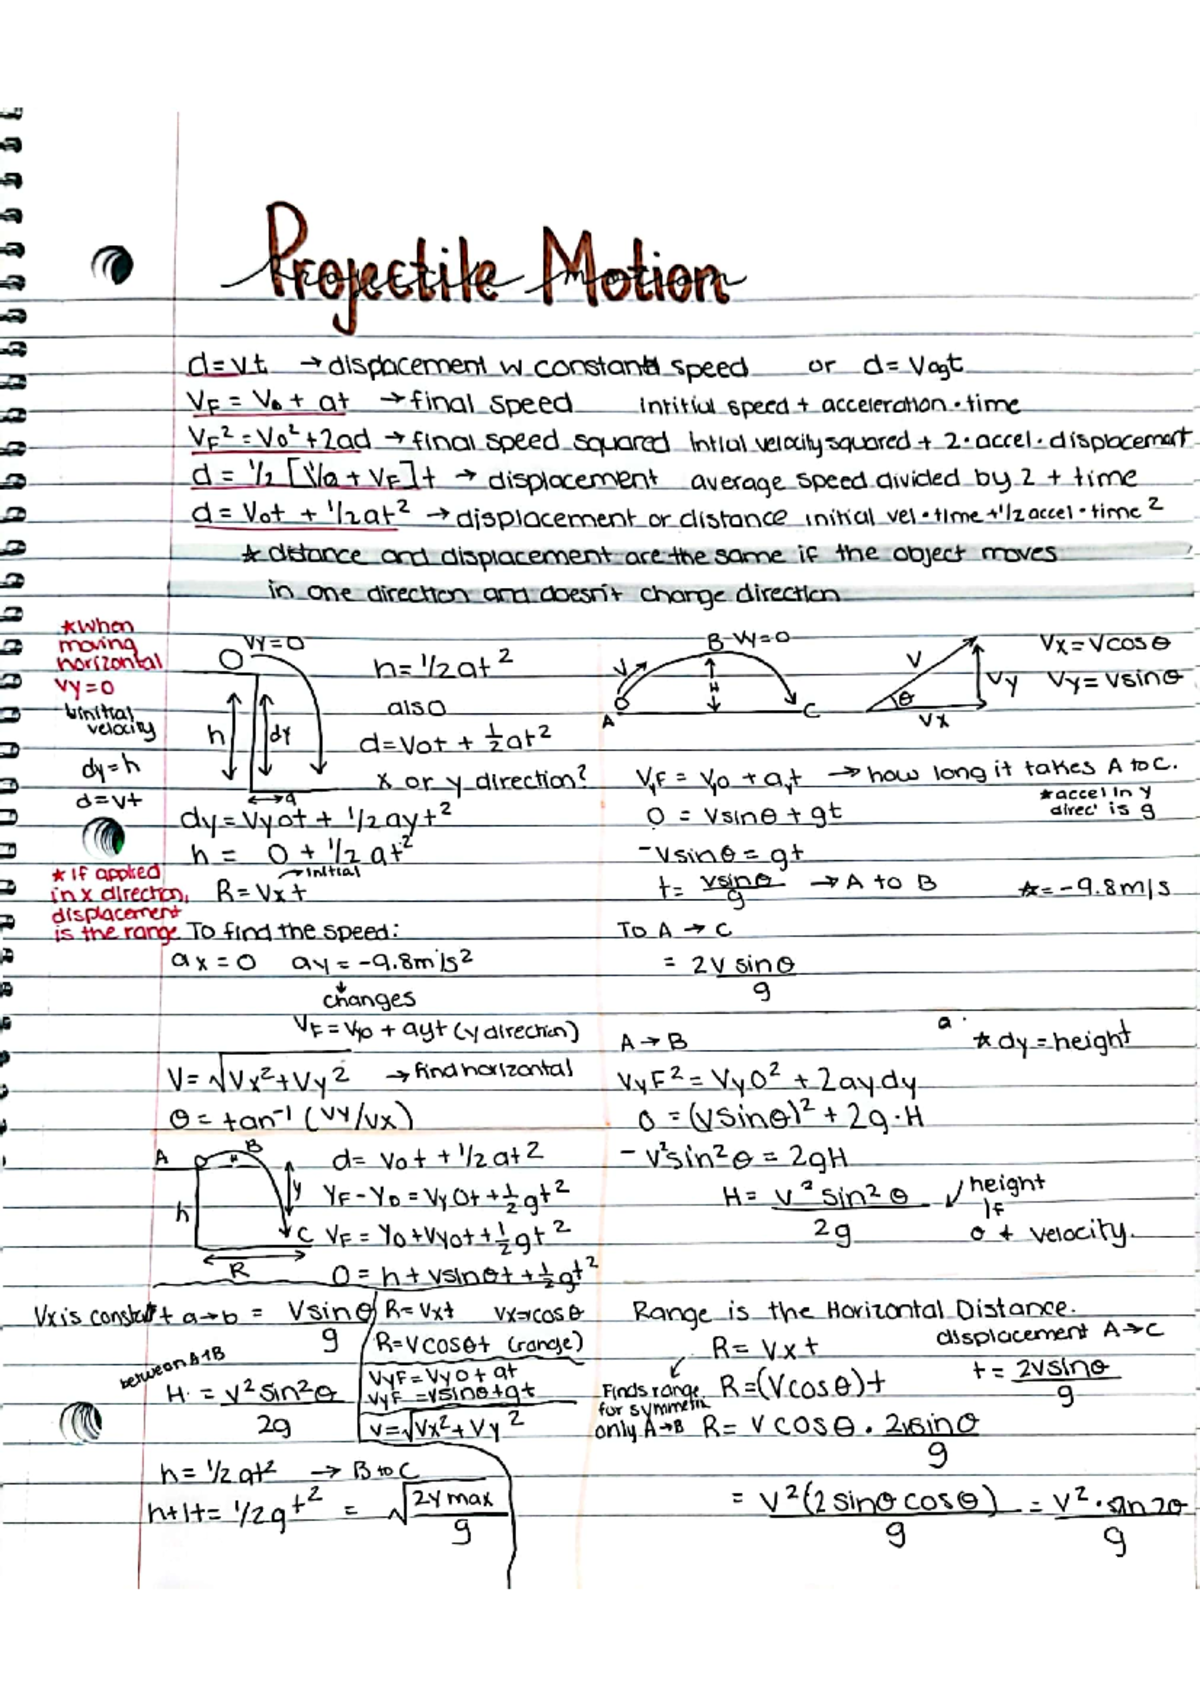 Projectile Motion
d=vt → displacement w constant speed or d=Vagt
VF = Vo + at → final speed intitial speed + acceleration · time
VF² = Vo² + 2ad → final speed squared intial velocity squared + 2 · accel · displacement
d = 1/2 [Va + VF]t → displacement average speed divided by 2 + time
d = Vot + 1/2at² → displacement or distance initial vel · time + 1/2 accel · time²
* distance and displacement are the same if the object moves
in one direction and doesn't change direction
* When
moving
horizontal
vy=0
initial
velocity
dy=h
d=vt
O Vy=0
h
dy
d
h=1/2at²
also
d=Vot + 1/2at²
x or y direction?
dy=Vyot + 1/2ayt²
h = 0 + 1/2at²
initial
* If applied
in x direction,
displacement
is the range
R=Vxt
To find the speed:
ax=0 ay=-9.8m/s²
changes
VF=Vyo + ayt (y direction)
V=√Vx²+Vy² → find horizontal
θ = tan⁻¹(vy/vx)
A B
H
h
y
C
R
d= Vot + 1/2at²
YF-Yo=Vyot+1/2gt²
VF=Yo+Vyot+1/2gt²
0=h+vsinθt+1/2gt²
Vx is constant a→b = Vsinθ/g
between A→B
H = v²sin²θ/2g
R=Vxt Vx=cosθ
R=Vcosθt (range)
VyF=Vyo+at
VyF=vsinθ+gt
v=√Vx²+Vy²
h=1/2at² → B to C
h+H=1/2gt² = √2ymax/g
B Vy=0
V
H
A
C
V
θ
Vy
Vx
Vx=Vcosθ
Vy=Vsinθ
VyF = Vyo + ayt → how long it takes A to C.
* accel in y
direc' is g
0 = Vsinθ + gt
-Vsinθ = gt
t= vsinθ/g → A to B
*=-9.8m/s
To A → C
= 2vsinθ/g
a
A → B
* dy=height
VyF²=Vyo²+2aydy
0=(Vsinθ)²+2g·H
-v²sin²θ=2gH
H= v²sin²θ/2g
height
If
θ + velocity.
Range is the Horizontal Distance.
displacement A→C
R= Vxt
t= 2Vsinθ/g
Finds range
for symmetric
only A→B
R=(Vcosθ)t
R= Vcosθ · 2vsinθ/g
= v²(2sinθcosθ)/g = v²·sin2θ/g